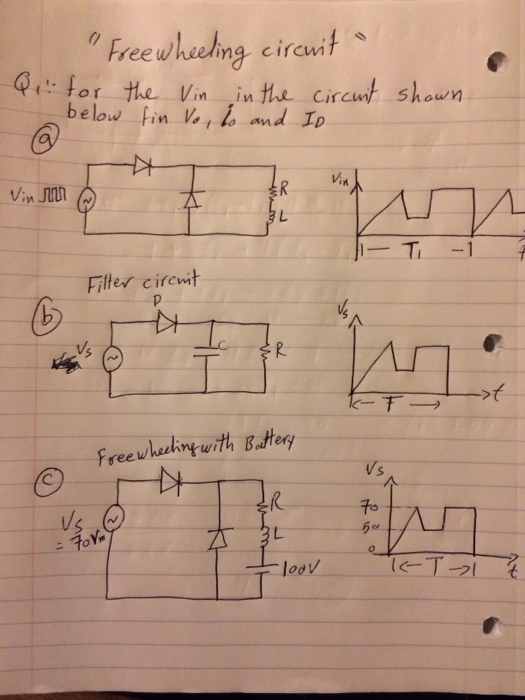 "Freewheeling circuit"
Q1:- for the Vin in the circuit shown
below fin Vo, io and ID
a
Vin
R
L
Vin
T1
t
Filter circuit
b
D
Vs
C
R
Vs
T
t
Freewheeling with Battery
c
Vs
= 70Vm
R
L
100V
Vs
70
50
0
T
t